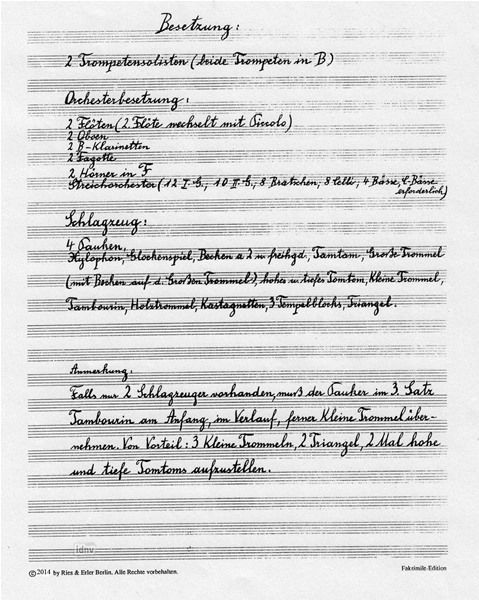 Besetzung:
2 Trompetensolisten (beide Trompeten in B)
Orchesterbesetzung:
2 Flöten (2. Flöte wechselt mit Piccolo)
2 Oboen
2 B-Klarinetten
2 Fagotte
2 Hörner in F
Streichorchester (12 I. G., 10 II. G., 8 Bratschen, 8 Celli, 4 Bässe, C-Bässe
erforderlich)
Schlagzeug:
4 Pauken,
Xylophon, Glockenspiel, Becken a 2 u. freihgd., Tamtam, Große Trommel
(mit Becken auf d. Großen Trommel), hohes u. tiefes Tomtom, Kleine Trommel,
Tambourin, Holztrommel, Kastagnetten, 3 Tempelblocks, Triangel.
Anmerkung:
Falls nur 2 Schlagzeuger vorhanden, muß der Pauker im 3. Satz
Tambourin am Anfang, im Verlauf, ferner Kleine Trommel über-
nehmen. Von Vorteil: 3 Kleine Trommeln, 2 Triangel, 2 Mal hohe
und tiefe Tomtoms aufzustellen.
idnv
© 2014 by Ries & Erler Berlin. Alle Rechte vorbehalten.
Faksimile-Edition